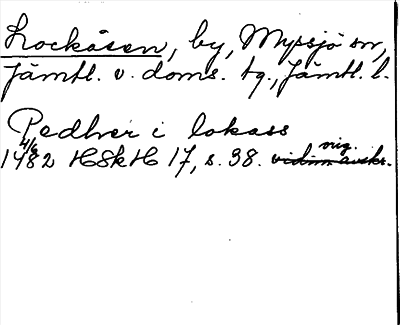 Lockåsen, by, Myssjö sn,
Jämtl. v. doms. tg., Jämtl. l.
Pedher i lokass
4/6 orig.
1482 HSkH 17, s. 38. vidim. avskr.